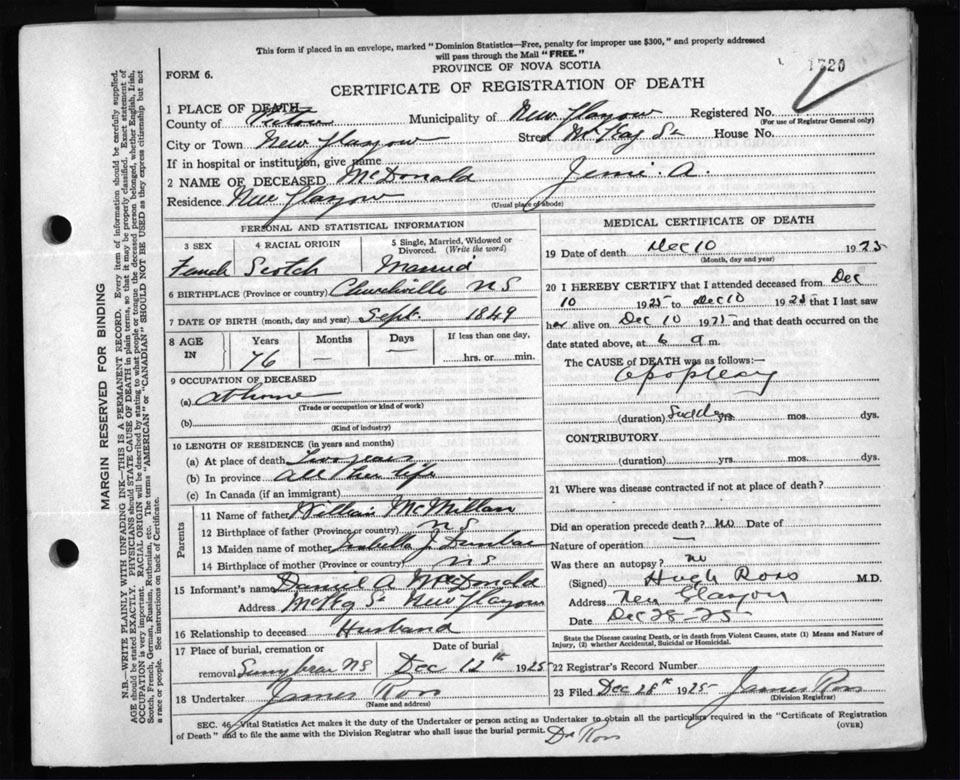 This form if placed in an envelope, marked "Dominion Statistics—Free, penalty for improper use $300," and properly addressed
will pass through the Mail "FREE."
PROVINCE OF NOVA SCOTIA
FORM 6.
CERTIFICATE OF REGISTRATION OF DEATH
1 PLACE OF DEATH
County of Pictou Municipality of New Glasgow Registered No.
(For use of Registrar General only)
City or Town New Glasgow Street McKay St House No.
If in hospital or institution, give name
2 NAME OF DECEASED McDonald Jessie A.
Residence New Glasgow
(Usual place of abode)
PERSONAL AND STATISTICAL INFORMATION
3 SEX 4 RACIAL ORIGIN 5 Single, Married, Widowed or Divorced. (Write the word)
Female Scotch Married
6 BIRTHPLACE (Province or country) Churchville NS
7 DATE OF BIRTH (month, day and year) Sept. 1849
8 AGE IN Years Months Days If less than one day,
76 — — hrs. or min.
9 OCCUPATION OF DECEASED
(a) at home
(Trade or occupation or kind of work)
(b)
(Kind of industry)
10 LENGTH OF RESIDENCE (in years and months)
(a) At place of death two years
(b) In province All her life
(c) In Canada (if an immigrant)
Parents
11 Name of father William McMillan
12 Birthplace of father (Province or country) NS
13 Maiden name of mother Isabella J Dunbar
14 Birthplace of mother (Province or country) NS
15 Informant's name Daniel A McDonald
Address McKay St New Glasgow
16 Relationship to deceased Husband
17 Place of burial, cremation or removal Date of burial
Sunnybrae NS Dec 12th 1925
18 Undertaker James Ross
(Name and address)
MEDICAL CERTIFICATE OF DEATH
19 Date of death Dec 10 1925
(Month, day and year)
20 I HEREBY CERTIFY that I attended deceased from Dec
10 1925 to Dec 10 1925 that I last saw
her alive on Dec 10 1925 and that death occurred on
date stated above, at 6 a m.
The CAUSE of DEATH was as follows:—
apoplexy
(duration) Sudden yrs. mos. dys.
CONTRIBUTORY
(duration) yrs. mos. dys.
21 Where was disease contracted if not at place of death?
Did an operation precede death? no Date of
Nature of operation —
Was there an autopsy? no
(Signed) Hugh Ross M.D.
Address New Glasgow
Date Dec 28-25
State the Disease causing Death, or in death from Violent Causes, state (1) Means and Nature of
Injury, (2) whether Accidental, Suicidal or Homicidal.
22 Registrar's Record Number
23 Filed Dec 28th 1925 James Ross
(Division Registrar)
SEC. 46, Vital Statistics Act makes it the duty of the Undertaker or person acting as Undertaker to obtain all the particulars required in the "Certificate of Registration
of Death" and to file the same with the Division Registrar who shall issue the burial permit.
(OVER)
Dr Ross
MARGIN RESERVED FOR BINDING
N.B.—WRITE PLAINLY WITH UNFADING INK—THIS IS A PERMANENT RECORD. Every item of information should be carefully supplied.
AGE should be stated EXACTLY. PHYSICIANS should STATE CAUSE OF DEATH in plain terms, so that it may be properly classified. Exact statement of
OCCUPATION is very important. RACIAL ORIGIN will be described by stating to what people or tongue the deceased person belonged, whether English, Irish,
Scotch, French, German, Russian, Ruthenian, etc. The terms "AMERICAN" or "CANADIAN" SHOULD NOT BE USED as they express citizenship but not
a race or people. See instructions on back of Certificate.